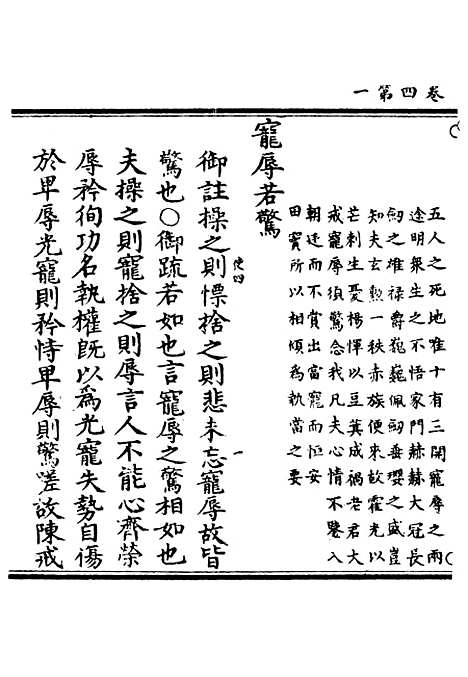 卷四第一
五人之死地唯十有三開寵辱之兩
途明衆生之不悟家門赫赫大冠長
劒之雄祿爵巍巍佩劒垂瓔之盛豈
知夫玄勲一秩赤族便來故霍光以
芒刺生憂楊惲以豆萁成禍老君大
戒寵辱須驚念我凡夫心情不鑒入
朝廷而不賞出當寵而恒安
田竇所以相傾爲執當之要
寵辱若驚
御註操之則慄捨之則悲未忘寵辱故皆
驚也〇御疏若如也言寵辱之驚相如也
夫操之則寵捨之則辱言人不能心齊榮
辱矜徇功名執權旣以爲光寵失勢自傷
於卑辱光寵則矜恃卑辱則驚嗟故陳戒